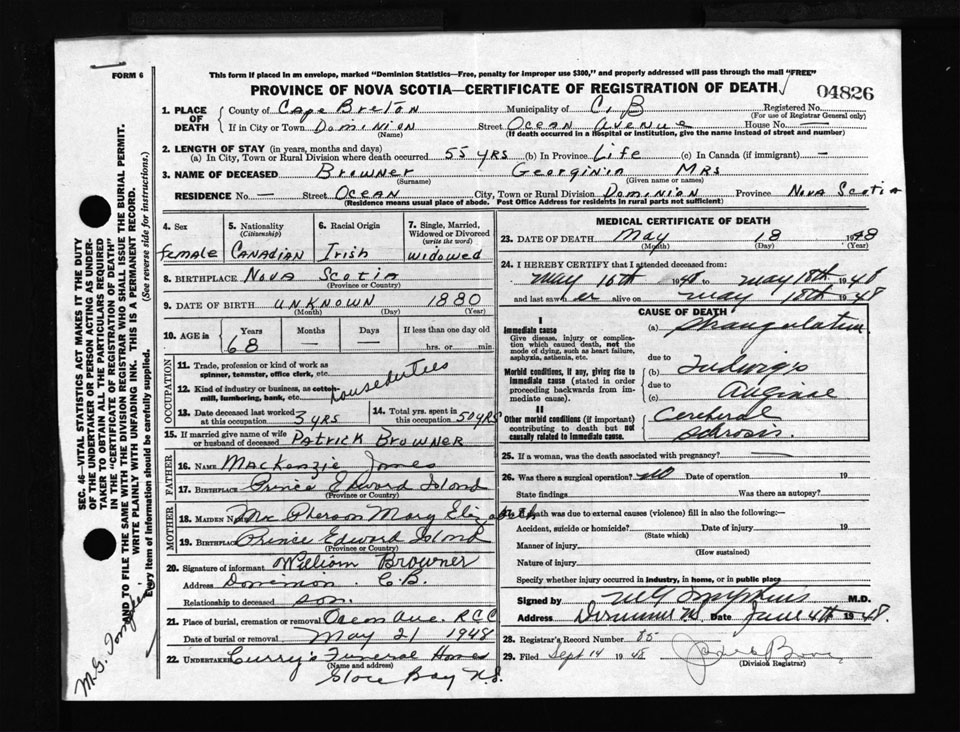 FORM 6
This form if placed in an envelope, marked "Dominion Statistics—Free, penalty for improper use $300," and properly addressed will pass through the mail "FREE"
PROVINCE OF NOVA SCOTIA—CERTIFICATE OF REGISTRATION OF DEATH
04826
1. PLACE OF DEATH
County of Cape Breton Municipality of C. B Registered No.
(For use of Registrar General only)
If in City or Town Dominion Street Ocean Avenue House No. —
(Name) (If death occurred in a Hospital or institution, give the name instead of street and number)
2. LENGTH OF STAY (in years, months and days)
(a) In City, Town or Rural Division where death occurred 55 yrs (b) In Province Life (c) In Canada (if immigrant) —
3. NAME OF DECEASED Browner Georginia Mrs
(Surname) (Given name or names)
RESIDENCE No. — Street Ocean City, Town or Rural Division Dominion Province Nova Scotia
(Residence means usual place of abode. Post Office Address for residents in rural parts not sufficient)
4. Sex
female
5. Nationality
(Citizenship)
Canadian
6. Racial Origin
Irish
7. Single, Married, Widowed or Divorced
(write the word)
widowed
8. BIRTHPLACE Nova Scotia
(Province or Country)
9. DATE OF BIRTH unknown 1880
(Month) (Day) (Year)
10. AGE in
Years Months Days If less than one day old
68 — — hrs. or min.
OCCUPATION
11. Trade, profession or kind of work as spinner, teamster, office clerk, etc.
12. Kind of industry or business, as cotton mill, lumbering, bank, etc.
house duties
13. Date deceased last worked at this occupation 3 yrs
14. Total yrs. spent in this occupation 50 yrs
15. If married give name of wife or husband of deceased Patrick Browner
FATHER
16. NAME MacKenzie James
17. Birthplace Prince Edward Island
(Province or Country)
MOTHER
18. Maiden Name McPherson Mary Elizabeth
19. Birthplace Prince Edward Island
(Province or Country)
20. Signature of informant William Browner
Address Dominion C.B.
Relationship to deceased son.
21. Place of burial, cremation or removal Ocean Ave. R C C
Date of burial or removal May 21 1948
22. UNDERTAKER Curry's Funeral Home
(Name and address)
Glace Bay N.S.
MEDICAL CERTIFICATE OF DEATH
23. DATE OF DEATH May 18 1948
(Month) (Day) (Year)
24. I HEREBY CERTIFY that I attended deceased from:
May 16th 1948 to May 18th 1948
and last saw her alive on May 18th 1948
CAUSE OF DEATH
I
Immediate cause
Give disease, injury or complication which caused death, not the mode of dying, such as heart failure, asphyxia, asthenia, etc.
(a) Strangulation
due to
Morbid conditions, if any, giving rise to immediate cause (stated in order proceeding backwards from immediate cause).
(b) Ludwig's
due to
(c) Anginae
II
Other morbid conditions (if important) contributing to death but not causally related to immediate cause.
Cerebral
sclrosis.
25. If a woman, was the death associated with pregnancy? —
26. Was there a surgical operation? no Date of operation 19
State findings Was there an autopsy?
27. If death was due to external causes (violence) fill in also the following:—
Accident, suicide or homicide? Date of injury 19
(State which)
Manner of injury
(How sustained)
Nature of injury
Specify whether injury occurred in industry, in home, or in public place
Signed by M G Tompkins M.D.
Address Dominion N.S. Date June 4th 1948.
28. Registrar's Record Number 85
29. Filed Sept 14 1948
(Division Registrar)
SEC. 46—VITAL STATISTICS ACT MAKES IT THE DUTY
OF THE UNDERTAKER OR PERSON ACTING AS UNDERTAKER
TO OBTAIN ALL THE PARTICULARS REQUIRED
IN THE "CERTIFICATE OF REGISTRATION OF DEATH"
AND TO FILE THE SAME WITH THE DIVISION REGISTRAR WHO SHALL ISSUE THE BURIAL PERMIT.
WRITE PLAINLY WITH UNFADING INK. THIS IS A PERMANENT RECORD.
Every item of Information should be carefully supplied. (See reverse side for instructions.)